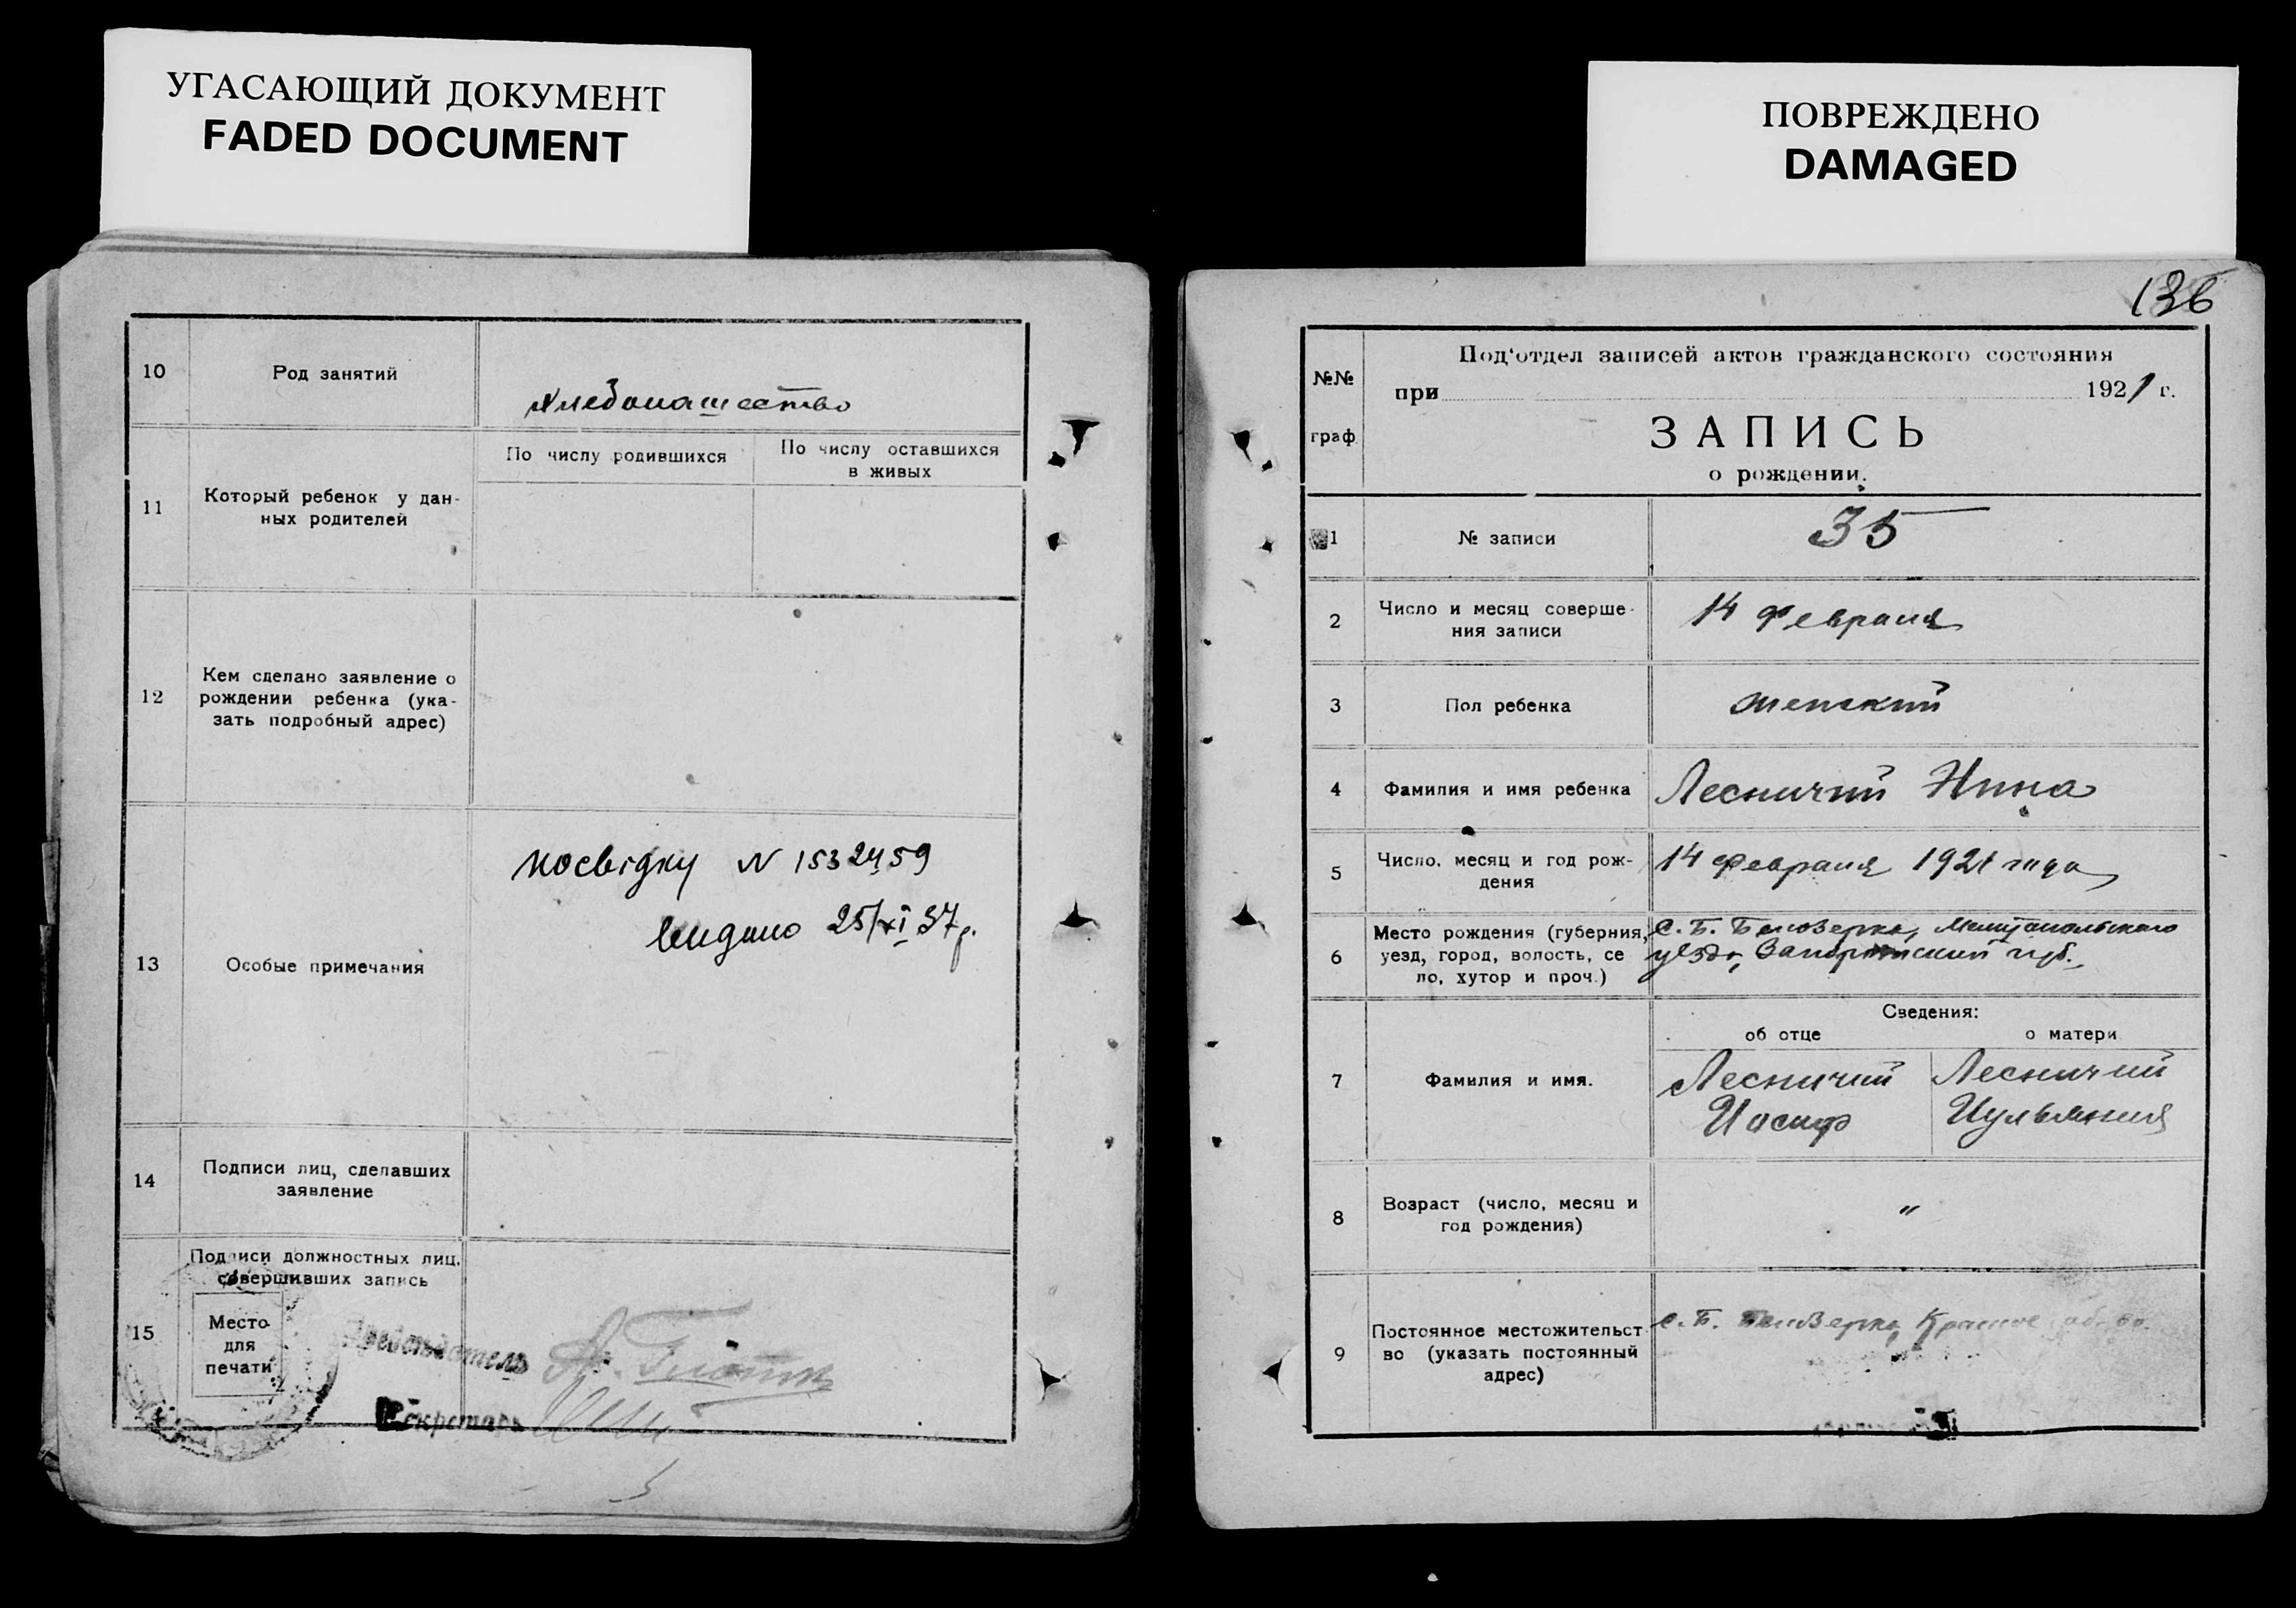 УГАСАЮЩИЙ ДОКУМЕНТ
FADED DOCUMENT
10
Род занятий
хлебопашество
11
Который ребенок у дан-
ных родителей
По числу родившихся
По числу оставшихся
в живых
12
Кем сделано заявление о
рождении ребенка (ука-
зать подробный адрес)
13
Особые примечания
посвідку N 1532459
видано 25/XI 37 р.
14
Подписи лиц, сделавших
заявление
15
Подписи должностных лиц,
совершивших запись
Место
для
печати
Председатель
Секретарь
ПОВРЕЖДЕНО
DAMAGED
136
№№
граф.
Под'отдел записей актов гражданского состояния
при 1921 г.
ЗАПИСЬ
о рождении.
1
№ записи
35
2
Число и месяц соверше-
ния записи
14 февраля
3
Пол ребенка
женский
4
Фамилия и имя ребенка
Лесничий Нина
5
Число, месяц и год рож-
дения
14 февраля 1921 года
6
Место рождения (губерния,
уезд, город, волость, се
ло, хутор и проч.)
С. Б. Белозерка, Мелитопольского
уезда, Запорожский губ.
Сведения:
об отце
о матери
7
Фамилия и имя.
Лесничий
Иосиф
Лесничий
Иульяния
8
Возраст (число, месяц и
год рождения)
"
9
Постоянное местожительст
во (указать постоянный
адрес)
с. Б. Белозерка,